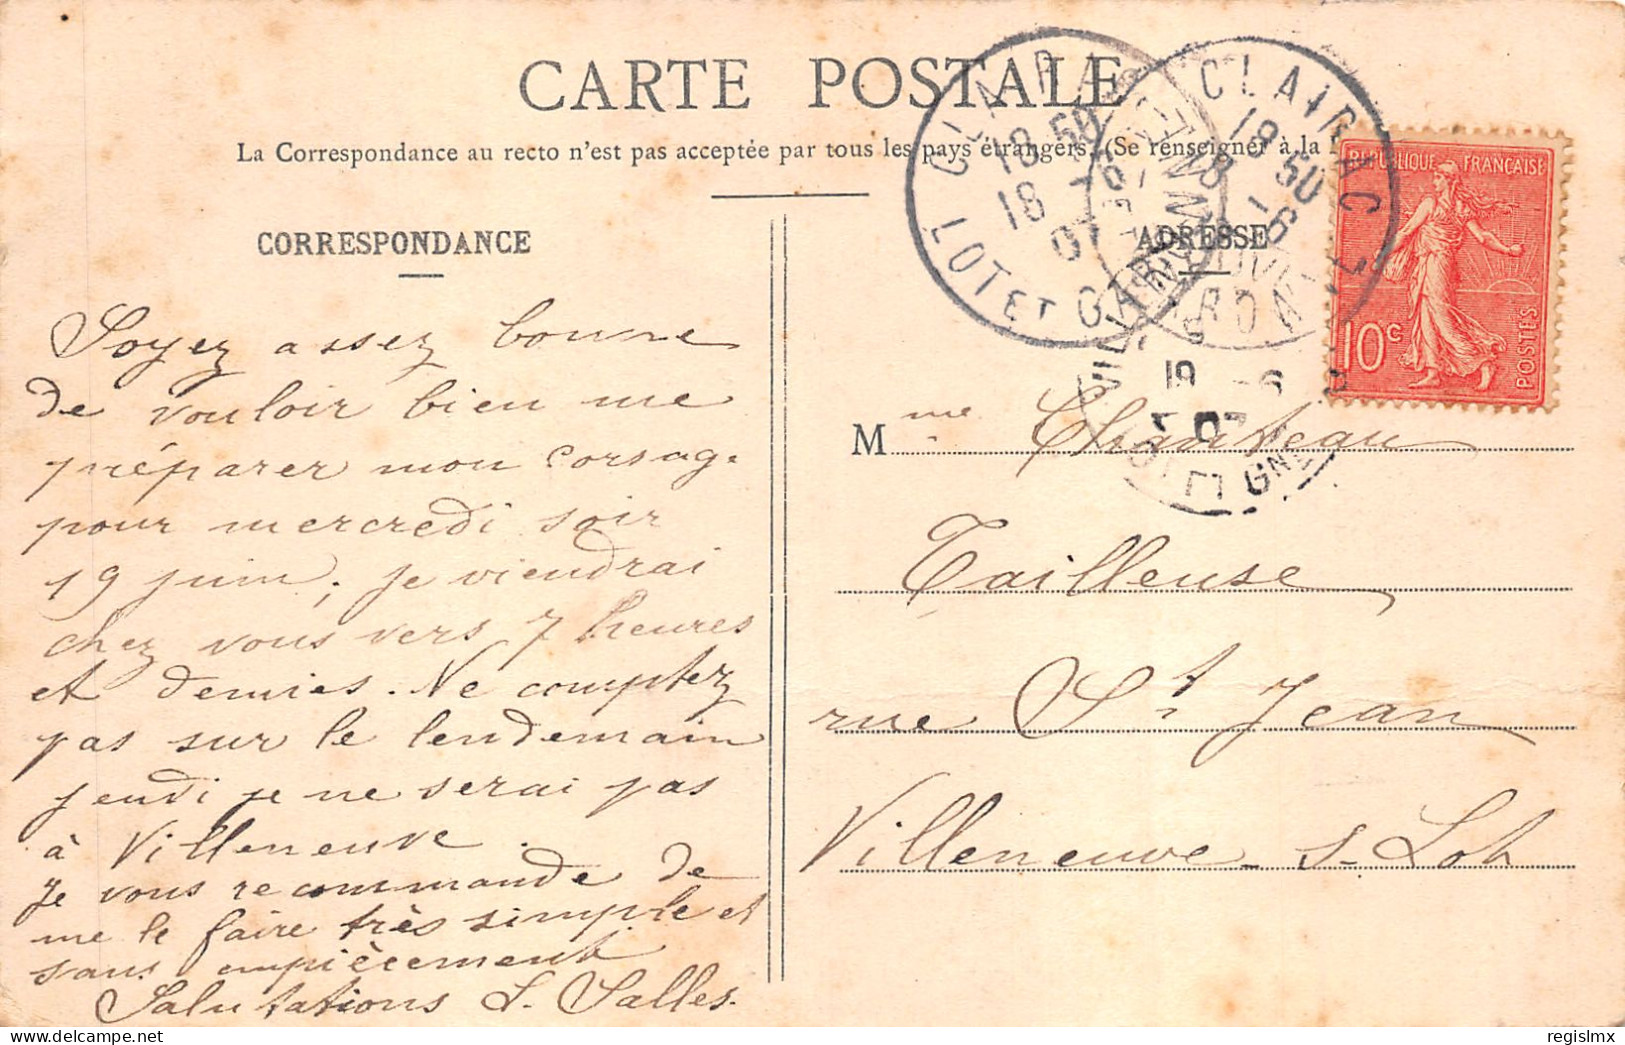 CARTE POSTALE
La Correspondance au recto n'est pas acceptée par tous les pays étrangers. (Se renseigner à la
CORRESPONDANCE
Soyez assez bonne
de vouloir bien me
préparer mon corsage
pour mercredi soir
19 juin; je viendrai
chez vous vers 7 heures
et demies. Ne comptez
pas sur le lendemain
jeudi je ne serai pas
à Villeneuve.
Je vous recommande de
me le faire très simple et
sans empiècement
Salutations S. Salles.
ADRESSE
CLAIRAC
LOT ET GARONNE
18 50
18 -6
07
CLAIRAC
18 50
18 -6
REPUBLIQUE FRANÇAISE
10c
POSTES
Mme
Tailleuse
rue St Jean
Villeneuve-s-Lot
delcampe.net
regislmx